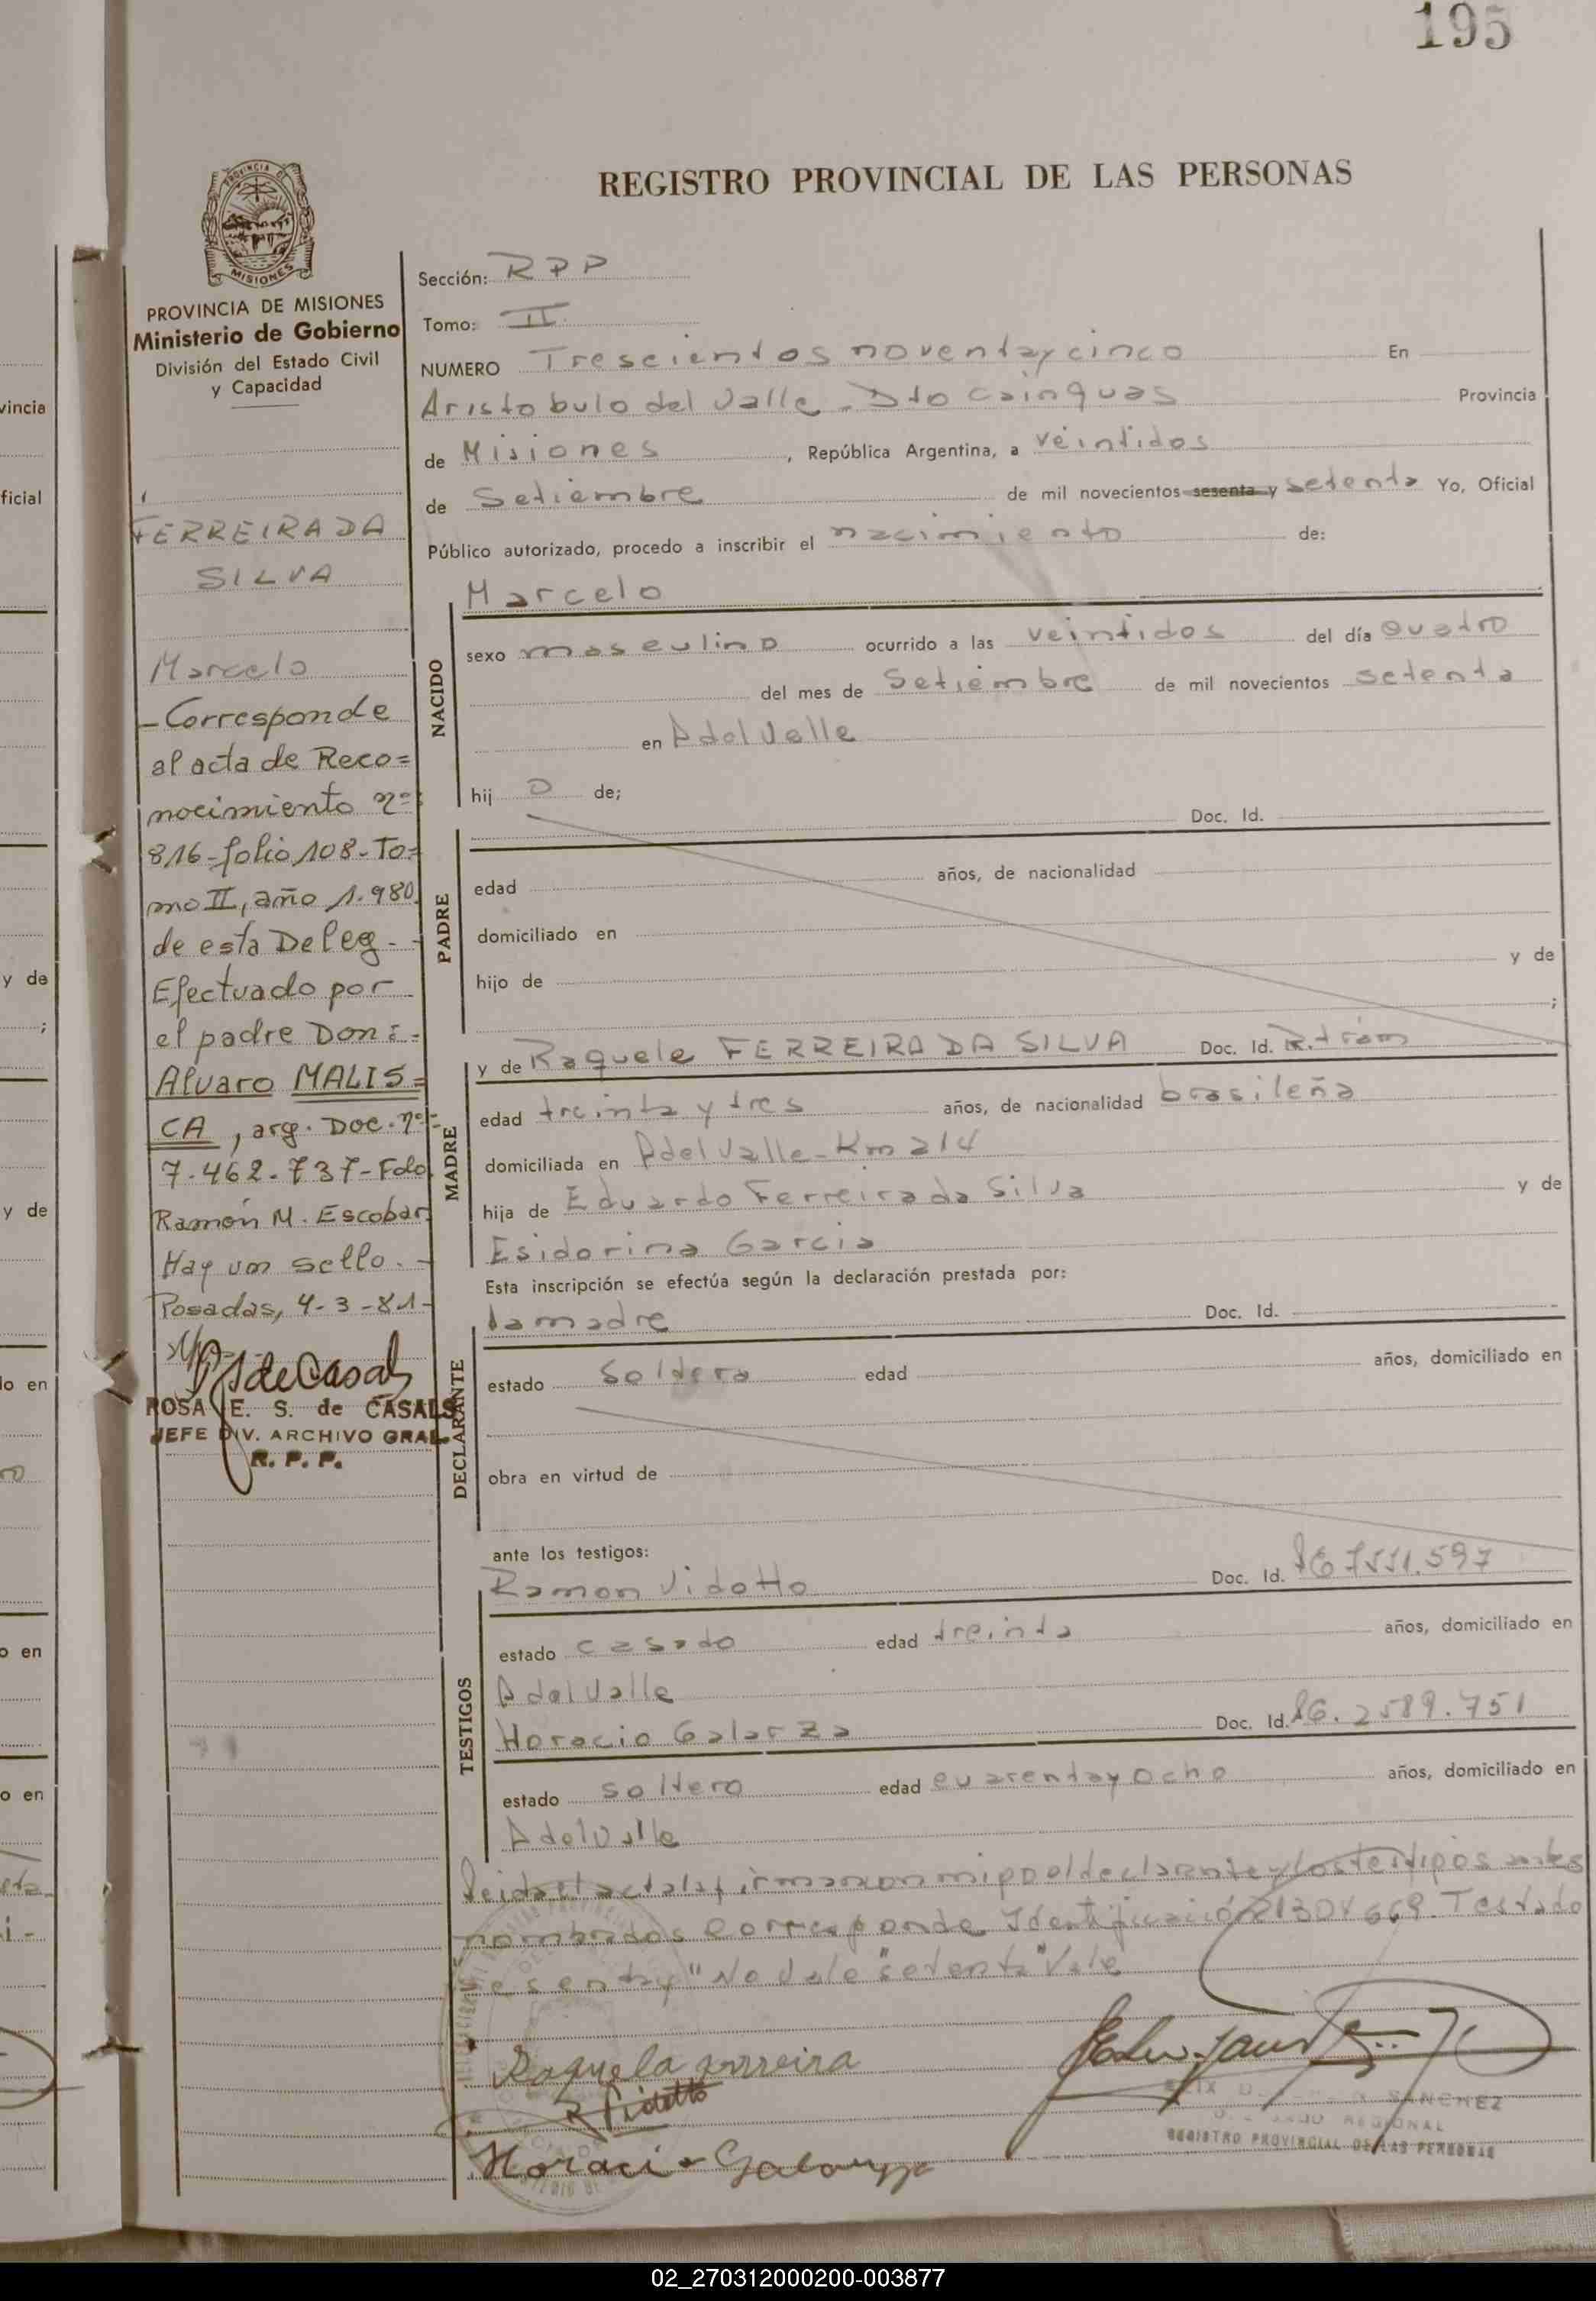 195
REGISTRO PROVINCIAL DE LAS PERSONAS
PROVINCIA DE
MISIONES
PROVINCIA DE MISIONES
Ministerio de Gobierno
División del Estado Civil
y Capacidad
FERREIRA DA
SILVA
Marcelo
-Corresponde
al acta de Reco=
nocimiento nº
816-folio 108-To=
mo II, año 1.980
de esta Deleg-
Efectuado por
el padre Don:-
Alvaro MALIS=
CA, arg. Doc. nº
7.462.737-Fdo
Ramón M. Escobar
Hay un sello.-
Posadas, 4-3-81-
ROSA E. S. de CASALS
JEFE DIV. ARCHIVO GRAL.
R. P. P.
Sección: RPP
Tomo: II
NUMERO Trescientos noventa y cinco En
Aristobulo del Valle - Dto Cainguas Provincia
de Misiones, República Argentina, a veintidos
de Setiembre de mil novecientos sesenta y setenta Yo, Oficial
Público autorizado, procedo a inscribir el nacimiento de:
NACIDO
Marcelo
sexo masculino ocurrido a las veintidos del día cuatro
del mes de Setiembre de mil novecientos setenta
en A del Valle
hij o de;
Doc. Id.
PADRE
edad años, de nacionalidad
domiciliado en
hijo de y de
;
MADRE
y de Raquele FERREIRA DA SILVA Doc. Id. R. tram
edad treinta y tres años, de nacionalidad brasileña
domiciliada en A del Valle - Km 214
hija de Eduardo Ferreira da Silva y de
Esidorina Garcia
Esta inscripción se efectúa según la declaración prestada por:
DECLARANTE
la madre Doc. Id.
estado soltera edad años, domiciliado en
obra en virtud de
ante los testigos:
TESTIGOS
Ramon Vidotto Doc. Id. 7551.597
estado casado edad treinta años, domiciliado en
A del Valle
Horacio Galarza Doc. Id. 2589.751
estado soltero edad cuarenta y ocho años, domiciliado en
A del Valle
Leida el acta la firman conmigo el declarante y los testigos antes
nombrados corresponde Identificació 21304669. Testado
"sesenta y" No Vale "setenta" Vale
Raquela Ferreira
R Vidotto
Horacio Galarza
SANCHEZ
REGIONAL
REGISTRO PROVINCIAL DE LAS PERSONAS
vincia
ficial
y de
;
y de
do en
o en
o en
02_270312000200-003877